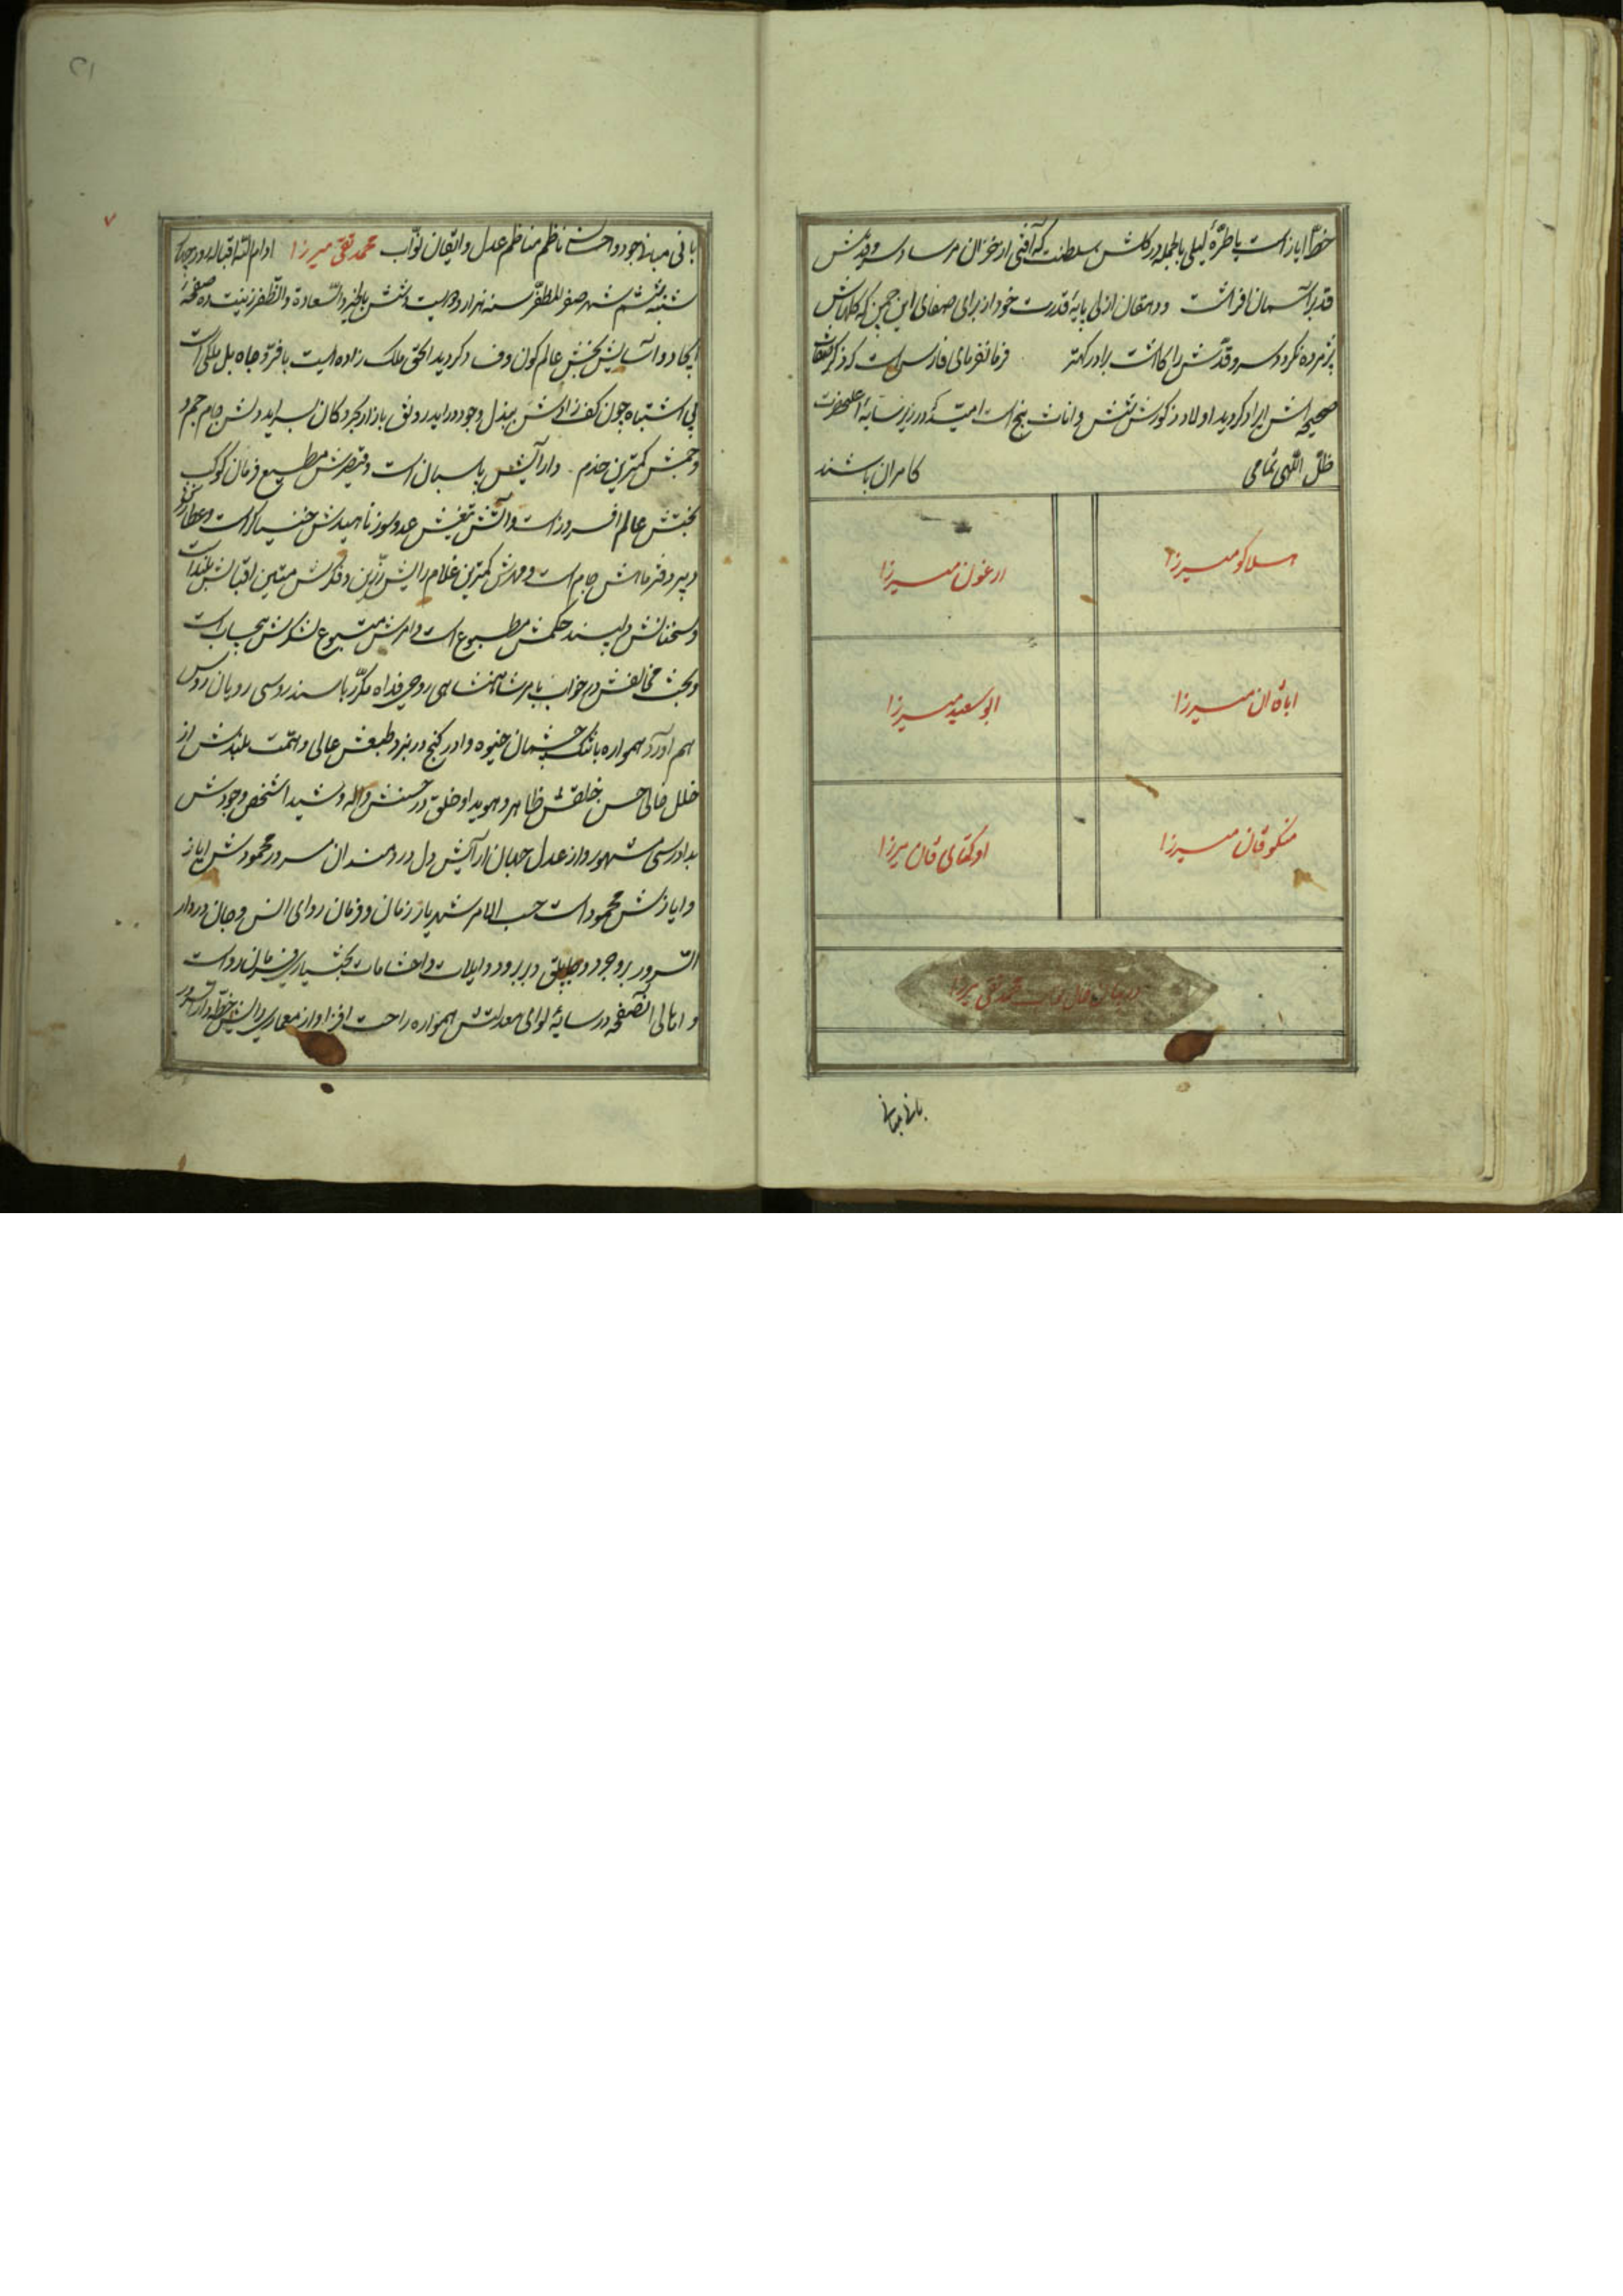 خط ایاز است یا طرهٔ لیلی بالجمله در گلشن سلطنت که آفتی از خزان مرساد سرو قدش
قد بر آسمان افراشت و دهقان ازلی بپایهٔ قدرت خود از برای صفای این چمن که گلهایش
پژمرده نگردد سرو قدش را کاشت برادر کهتر فرمانفرمای فارس است که ذکر
صحیحه‌اش ایراد گردید اولاد ذکورش شش و اناث پنج است امید که در زیر سایهٔ اعلیحضرت
ظل اللهی تمامی کامران باشند
هلاکو میرزا
ارغون میرزا
اباقان میرزا
ابوسعید میرزا
منکوقان میرزا
اوکتای قاآن میرزا
در بیان حال نواب محمد تقی میرزا
بانی مبانی
۲۱
۷
بانی مبانی جود و احسان ناظم مناظم عدل و ایقان نواب محمد تقی میرزا ادام الله اقباله در
شنبه ششم شهر صفر المظفر سنه هزار و دویست و شش بالخیر و السعادة و الظفر زینت ده صفحهٔ
ایجاد و آسایش بخش عالم کون و فساد گردید الحق ملک زاده ایست با فر و جاه بل ملکی است
بی اشتباه چون کف رادش ببذل وجود در اید رونق بازار بحر و کان سراید دلش جام جم و
جمش کمترین خدم دارایش پاسبان است و قیصرش مطیع فرمان کوکب
بختش عالم افروز است و آتش تیغش عدو سوز ناهیدش خنیاگر است و عطاردش
دبیر دفتر ماهش جام است و مهرش کمترین غلام رایش رزین و فکرش متین اقبالش بلند است
و سخنانش دلپسند حکمش مطبوع است و امرش متبوع لشکرش بیحساب است
و بخت مخالفش در خواب بامر شاهنشاهی روحی فداه مکرر با سند روسی رویان روس
هم آورد همواره با تنگ چشمان خیوه و ادرکنج در نبرد طبعش عالی و همت بلندش از
خلل خالی حسن خلقش ظاهر و هویدا و خلق در حسنش واله و شیدا شخص وجودش
بدادرسی مشهور و از عدل جهان آرایش دل دردمندان مسرور محمودش ایاز
و ایازش محمود است حسب الامر شهریار زمان و فرمان روای انس و جان در دار
السرور بروجرد و جاپلق و بربرود و ایلات و احشامات بختیاری فرمان روا است
و اهالی آنصفحه در سایهٔ لوای معدلتش همواره راحت افزا و از معماری